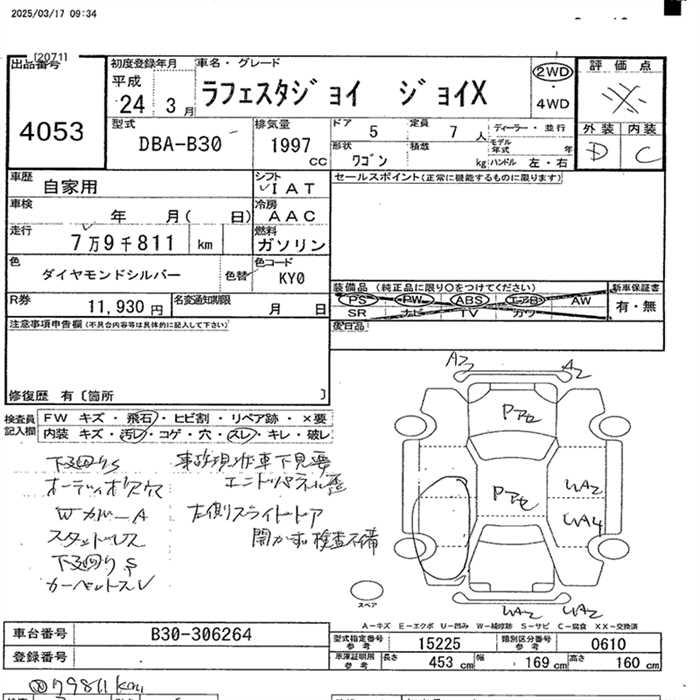 2025/03/17 09:34
[2071]
出品番号
4053
初度登録年月
平成
24 3月
車名・グレード
ラフェスタジョイ ジョイX
2WD
・
4WD
評価点
外装 内装
D C
型式
DBA-B30
排気量
1997
cc
ドア 5
定員 7 人
形状
ワゴン
積載
kg
ディーラー・並行
モデル年式 年
ハンドル 左・右
車歴
自家用
シフト
IAT
車検
年 月( 日)
冷房
AAC
走行
7万9千811 km
燃料
ガソリン
色
ダイヤモンドシルバー
色替
色コード
KY0
R券
11,930円
名変通知期限
月 日
セールスポイント(正常に機能するものに限ります)
装備品(純正品に限り○をつけてください)
PS PW ABS エアB AW
SR ナビ TV カワ
新車保証書
有・無
後日品
注意事項申告欄(不具合内容等は具体的に記入して下さい)
修復歴 有〔箇所 〕
検査員
記入欄
FW キズ・飛石・ヒビ割・リペア跡・×要
内装 キズ・汚レ・コゲ・穴・スレ・キレ・破レ
下廻りS
オーディオレス穴
Wカバ-A
スタッドレス
下廻りS
事故現状車下見要
エンドパネル歪
左側スライドドア
開かず検査不備
A2
A2
Pアセ
Pアセ
UA2
UA4
UA2
UA2
スペア
A-キズ E-エクボ U-凹み W-補修跡 S-サビ C-腐食 XX-交換済
車台番号
B30-306264
登録番号
型式指定番号
参考
15225
類別区分番号
参考
0610
車庫証明用
参考
長さ 453 cm
幅 169 cm
高さ 160 cm
79811km